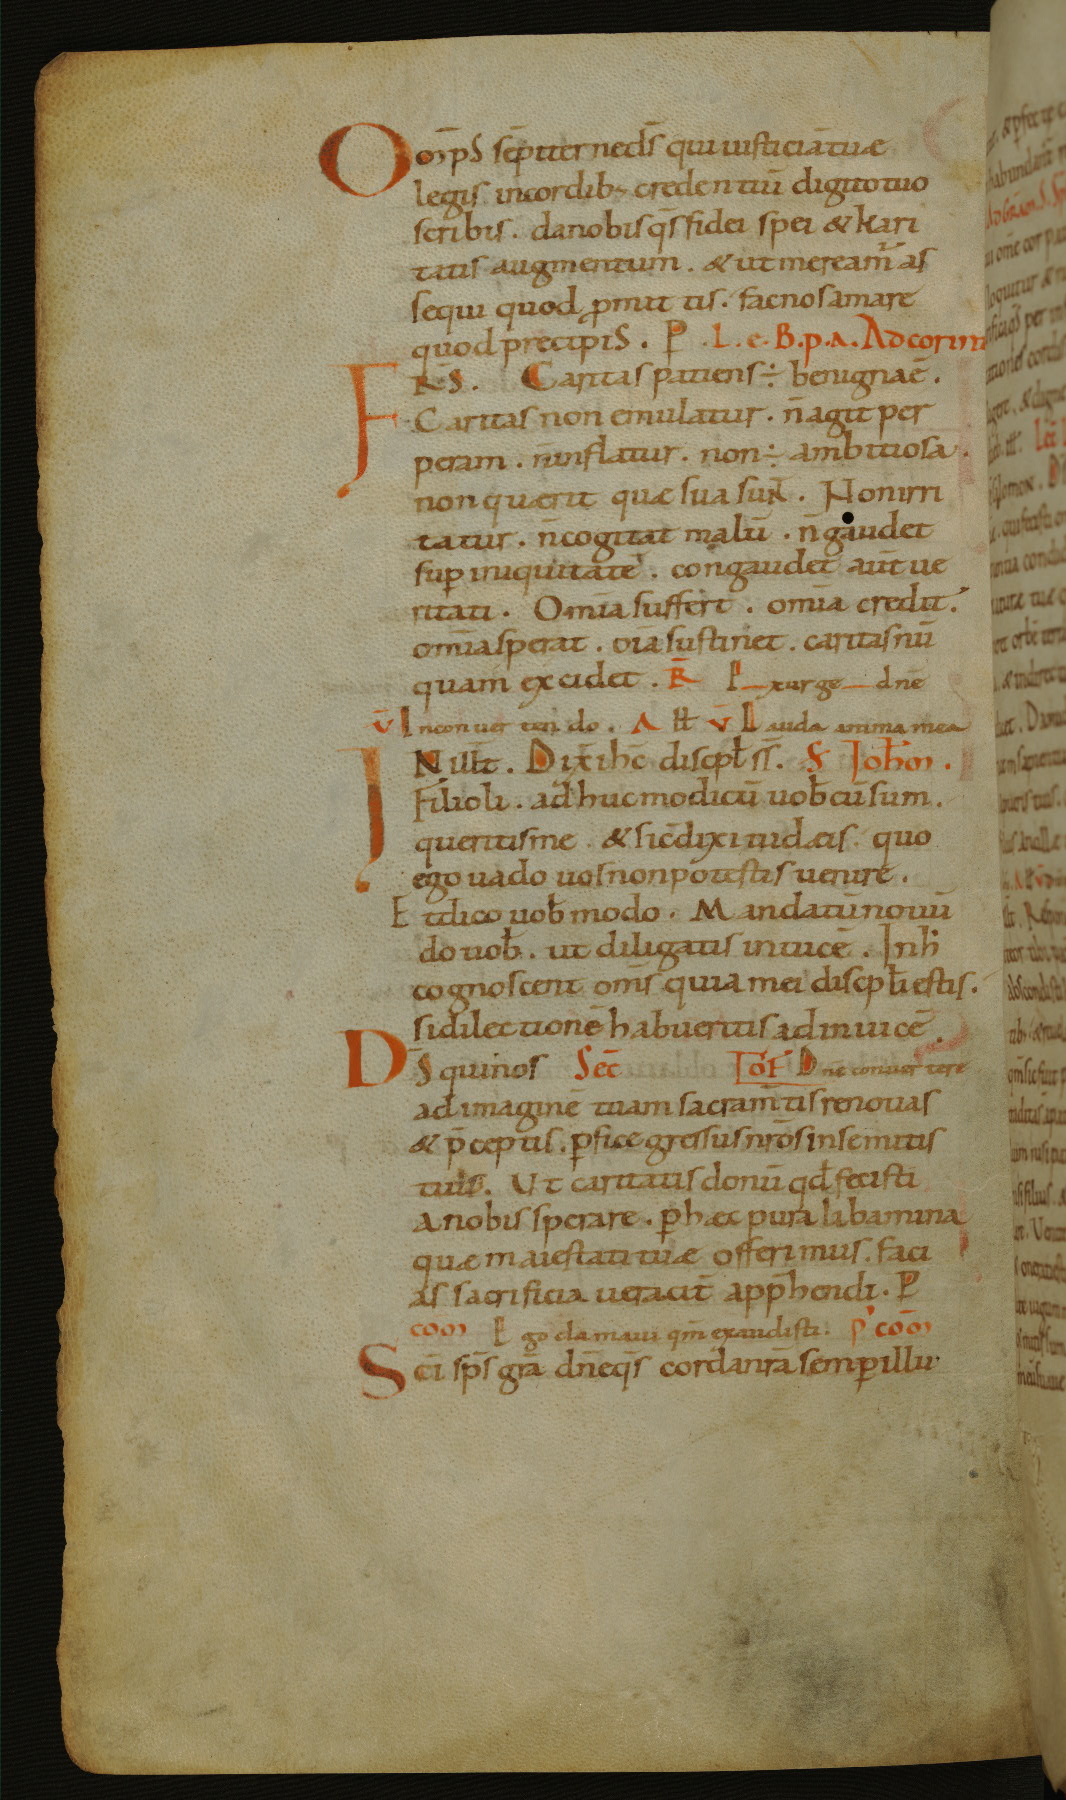 Oōmp̄S sēpiterneds̄ qui iusticiātuæ
legis incordib; credentiū digitotuo
scribis. danobisqs̄ fidei spei & kari
tatis augmentum. & ut meream̄ as
sequi quod ꝓmit tis. facnosamare
quod precipiS. P .L.e.B.p.a. Adcorint
FR̄S. Caritas patiens ÷ benignaē.
Caritas non emulatur. n̄agit per
peram. n̄inflatur. non÷ ambitiosa.
non quærit quæ sua sunt. Non irri
tatur. n̄cogitat malū. n̄gaudet
suꝑ iniquitate. congaudet aūt ue
ritati. Omīa suffert. omīa credit.
omīasperat. oīa sustinet. caritasnū
quam excidet. R̄ Exurge dnē
v̄ Inconuertendo. A ll̄ v̄ Lauda anima mea
IN ill̄t. Dix̄ ih̄c discpl̄ ss̄. S Ioh̄m.
Filioli. adhucmodicū uob̄cūsum.
queritisme & sic̄dixi iudæis quo
ego uado uosnonpotestis uenire.
Et dico uob̄ modo. Mandatūnouū
do uob̄. ut diligatis inuicē. Inh̄
cognoscent om̄s quia mei discpl̄i estis.
sidilectionē habueritisadinuicē.
DS̄ quinos Sec̄ Tō F̄ Dnē conuertere
ad imaginē tuam sacram̄tis renouas
& p̄ceptis. ꝑfice gressus nr̄os in semitis
tuis. Ut caritatis donū qd̄ fecisti
a nobis sperare. ꝑ hæc pura libamina
quæ maiestati tuæ offerimus. faci
as sacrificia ueracit̄ app̄hendi. P
com̄ Ego clamaui qm̄ exaudisti. p' com̄
Sc̄i sp̄s grā dn̄eqs̄ cordanrā semꝑillu